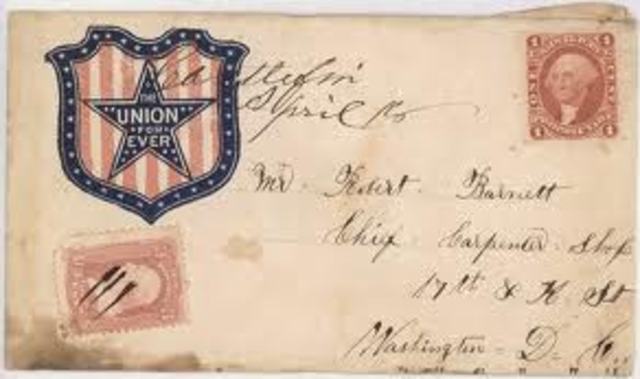 THE
UNION
FOR
EVER
April
Mr. Robert Barnett
Chief Carpenter Shop
17th & K. St
Washington D. C.